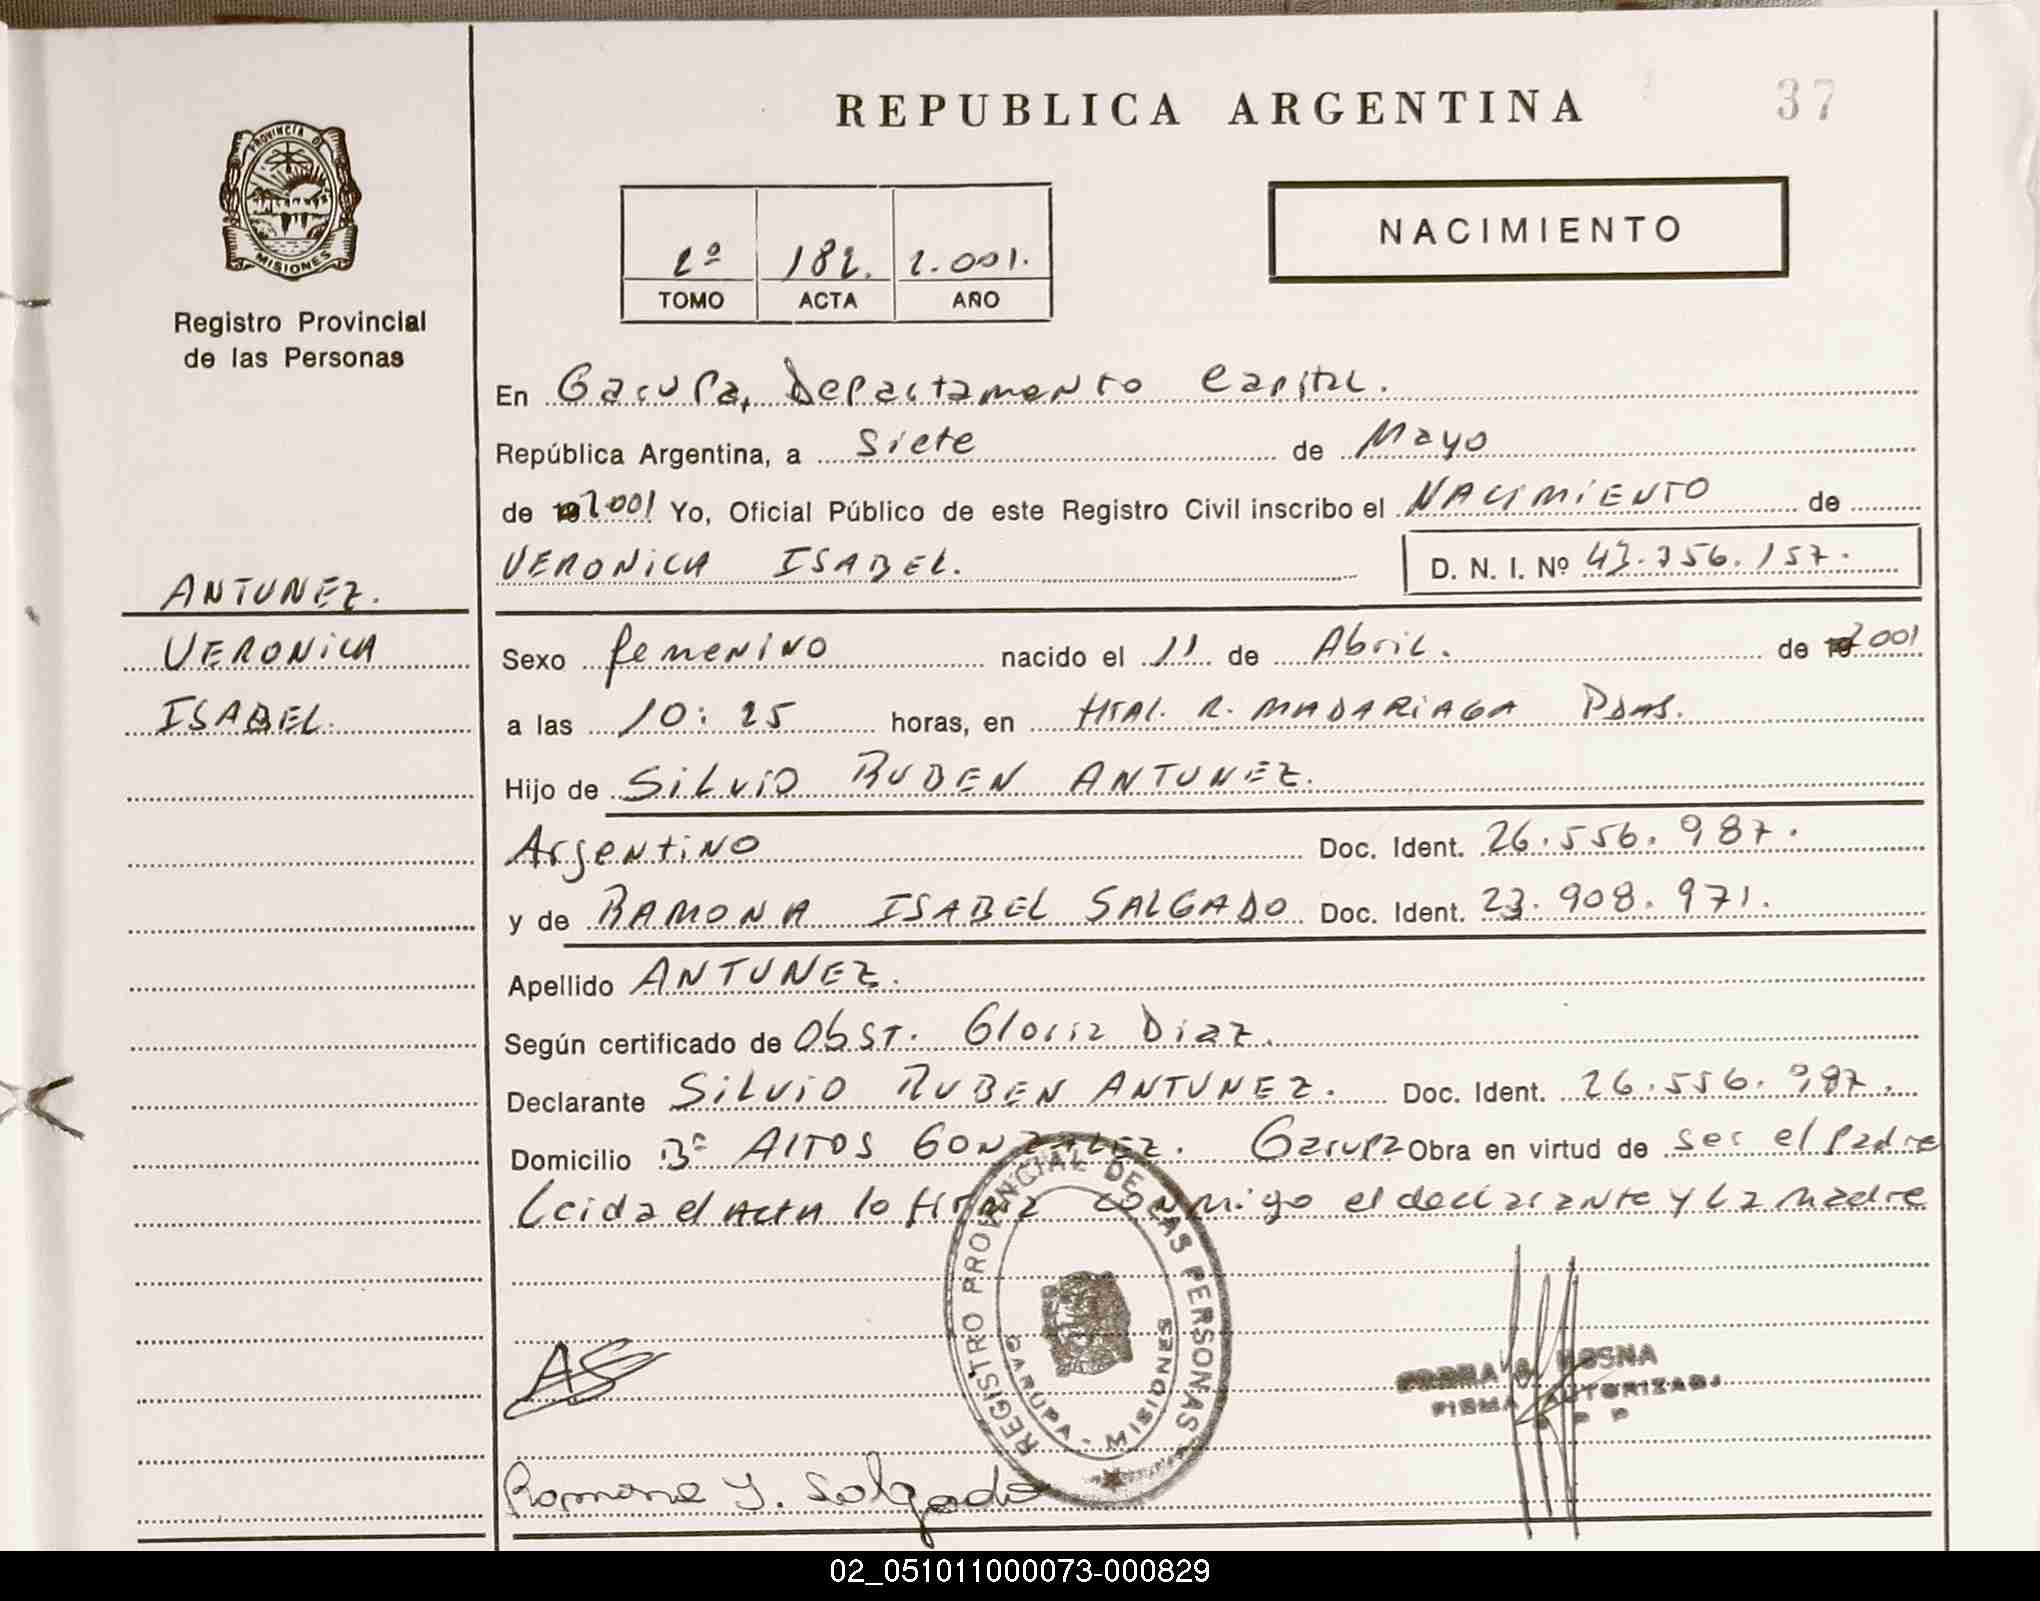 REPUBLICA ARGENTINA
37
PROVINCIA DE
MISIONES
Registro Provincial
de las Personas
2º 182. 2.001.
TOMO ACTA AÑO
NACIMIENTO
En Garupa, Departamento Capital.
República Argentina, a Siete de Mayo
de 2001 Yo, Oficial Público de este Registro Civil inscribo el NACIMIENTO de
VERONICA ISABEL. D. N. I. Nº 43.356.157.
ANTUNEZ.
VERONICA
ISABEL.
Sexo femenino nacido el 11 de Abril. de 2001
a las 10:25 horas, en Htal. R. MADARIAGA Pdas.
Hijo de SILVIO RUBEN ANTUNEZ.
Argentino Doc. Ident. 26.556.987.
y de RAMONA ISABEL SALGADO Doc. Ident. 23.908.971.
Apellido ANTUNEZ.
Según certificado de Obst. Gloria Diaz.
Declarante SILVIO RUBEN ANTUNEZ. Doc. Ident. 26.556.987.
Domicilio Bº ALTOS GONZALEZ. Garupa Obra en virtud de ser el padre
Leida el Acta lo firma conmigo el declarante y la madre
REGISTRO PROVINCIAL DE LAS PERSONAS
GARUPA - MISIONES
AS
FIRMA AUTORIZADA
Ramona Y. Salgado
02_051011000073-000829